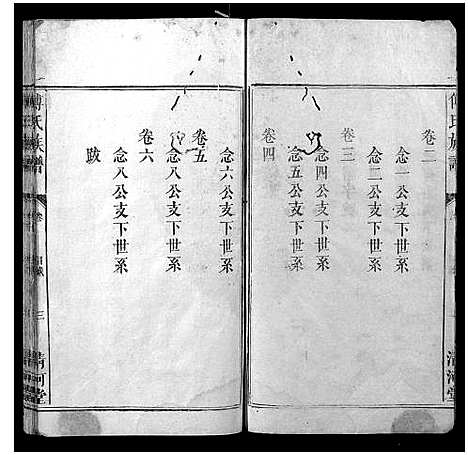 傅氏族譜
卷二
念一公支下世系
念二公支下世系
卷三
念四公支下世系
念五公支下世系
卷四
清河堂
念六公支下世系
卷五
念八公支下世系
卷六
念八公支下世系
跋
傅氏族譜
三
清河堂